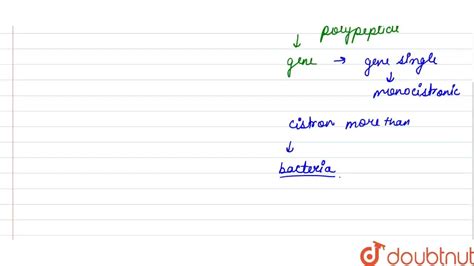 polypeptide
↓
gene → gene single
↓
monocistronic
cistron more than
↓
bacteria.
doubtnut